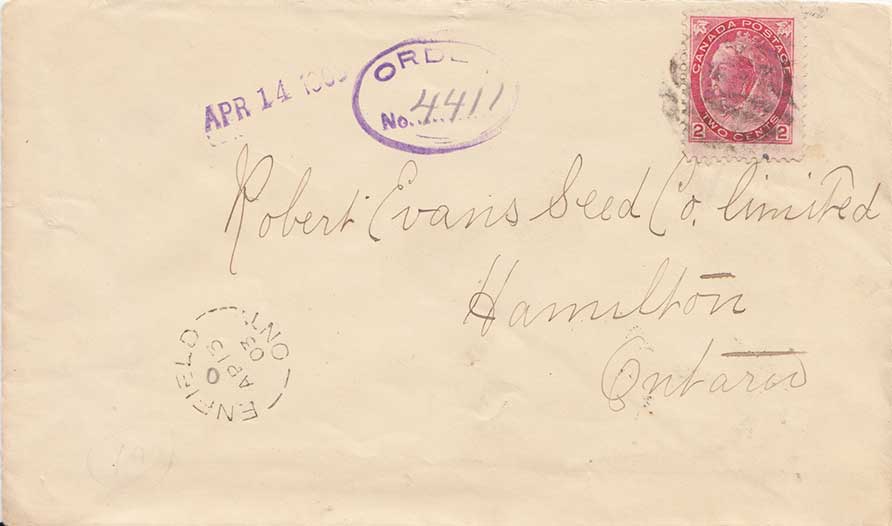 CANADA POSTAGE
2 TWO CENTS 2
ORDE
No. 4411
APR 14
Robert Evans Seed Co. limited
Hamilton
Ontario
ENFIELD ONT
O
AP 13
03